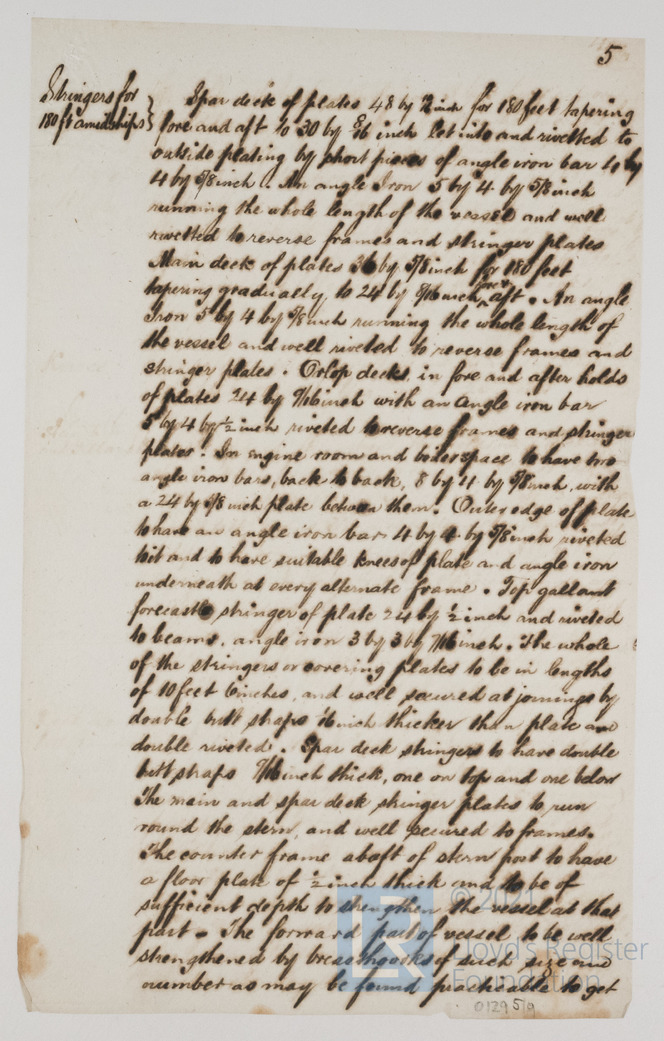 5
Stringers for
180 ft amidships
Spar deck of plates 48 by 1/2 inch for 180 feet tapering
fore and aft to 30 by 8/16 inch let into and rivetted to
outside plating by short pieces of angle iron bar 4 by
4 by 5/8 inch. An angle Iron 5 by 4 by 5/8 inch
running the whole length of the vessel and well
rivetted to reverse frames and stringer plates
Main deck of plates 36 by 5/8 inch for 180 feet
tapering gradually to 24 by 9/16 inch fore & aft. An angle
Iron 5 by 4 by 5/8 inch running the whole length of
the vessel and well riveted to reverse frames and
stringer plates. Orlop decks, in fore and after holds
of plates 24 by 9/16 inch with an angle iron bar
5 by 4 by 1/2 inch riveted to reverse frames and stringer
plates. In engine room and boiler space to have two
angle iron bars, back to back, 8 by 4 by 5/8 inch, with
a 24 by 5/8 inch plate between them. Outer edge of plate
to have an angle iron bar 4 by 4 by 5/8 inch riveted
to it and to have suitable knees of plate and angle iron
underneath at every alternate frame. Top gallant
forecastle stringer of plate 24 by 1/2 inch and riveted
to beams, angle iron 3 by 3 by 7/16 inch. The whole
of the stringers or covering plates to be in lengths
of 10 feet 6 inches, and well secured at joinings by
double butt straps 1/16 inch thicker than plate and
double riveted. Spar deck stringers to have double
butt straps 7/16 inch thick, one on top and one below
The main and spar deck stringer plates to run
round the stern, and well secured to frames.
The counter frame abaft of stern post to have
a floor plate of 1/2 inch thick and to be of
sufficient depth to strengthen the vessel at that
part. The forward part of vessel to be well
strengthened by breasthooks of such size and
number as may be found practicable to get
© 2021
Lloyd's Register
Foundation
LR